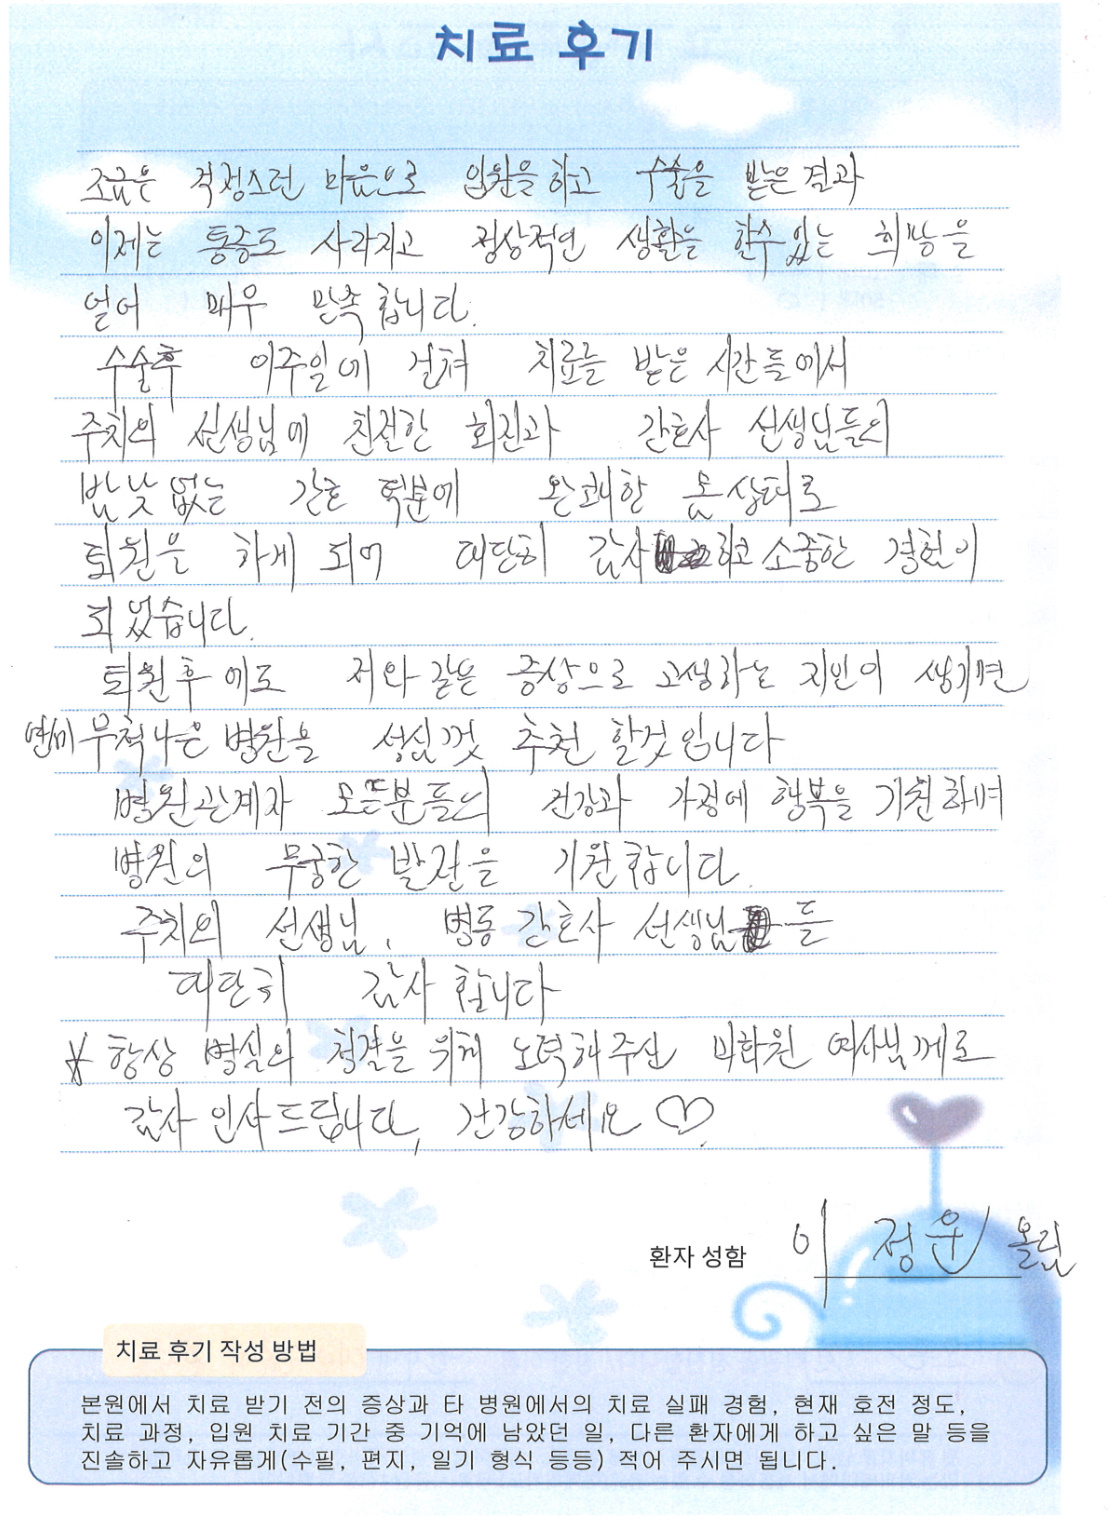 치료 후기
조금은 걱정스런 마음으로 입원을 하고 수술을 받은 결과
이제는 통증도 사라지고 정상적인 생활을 할수 있는 희망을
얻어 매우 만족 합니다.
수술후 이주일에 걸쳐 치료를 받은 시간들에서
주치의 선생님에 친절한 회진과 간호사 선생님들의
밤낮 없는 간호 덕분에 완쾌한 몸 상태로
퇴원을 하게 되어 대단히 감사하고 소중한 경험이
되었습니다.
퇴원후에도 저와 같은 증상으로 고생하는 지인이 생기면
무척나은 병원을 성심껏 추천 할것입니다
병원관계자 모든분들의 건강과 가정에 행복을 기원하며
병원의 무궁한 발전을 기원합니다.
주치의 선생님, 병동 간호사 선생님들
대단히 감사 합니다
항상 병실의 청결을 위해 노력해주신 미화원 여사님께로
감사 인사드립니다, 건강하세요 ♡.
환자 성함 이 정운 올림
치료 후기 작성 방법
본원에서 치료 받기 전의 증상과 타 병원에서의 치료 실패 경험, 현재 호전 정도,
치료 과정, 입원 치료 기간 중 기억에 남았던 일, 다른 환자에게 하고 싶은 말 등을
진솔하고 자유롭게(수필, 편지, 일기 형식 등등) 적어 주시면 됩니다.